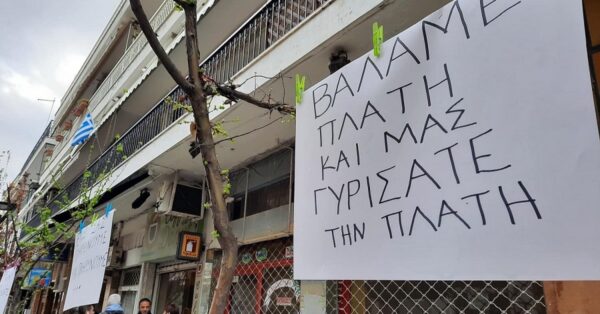 ΒΑΛΑΜΕ
ΠΛΑΤΗ
ΚΑΙ ΜΑΣ
ΓΥΡΙΣΑΤΕ
ΤΗΝ ΠΛΑΤΗ